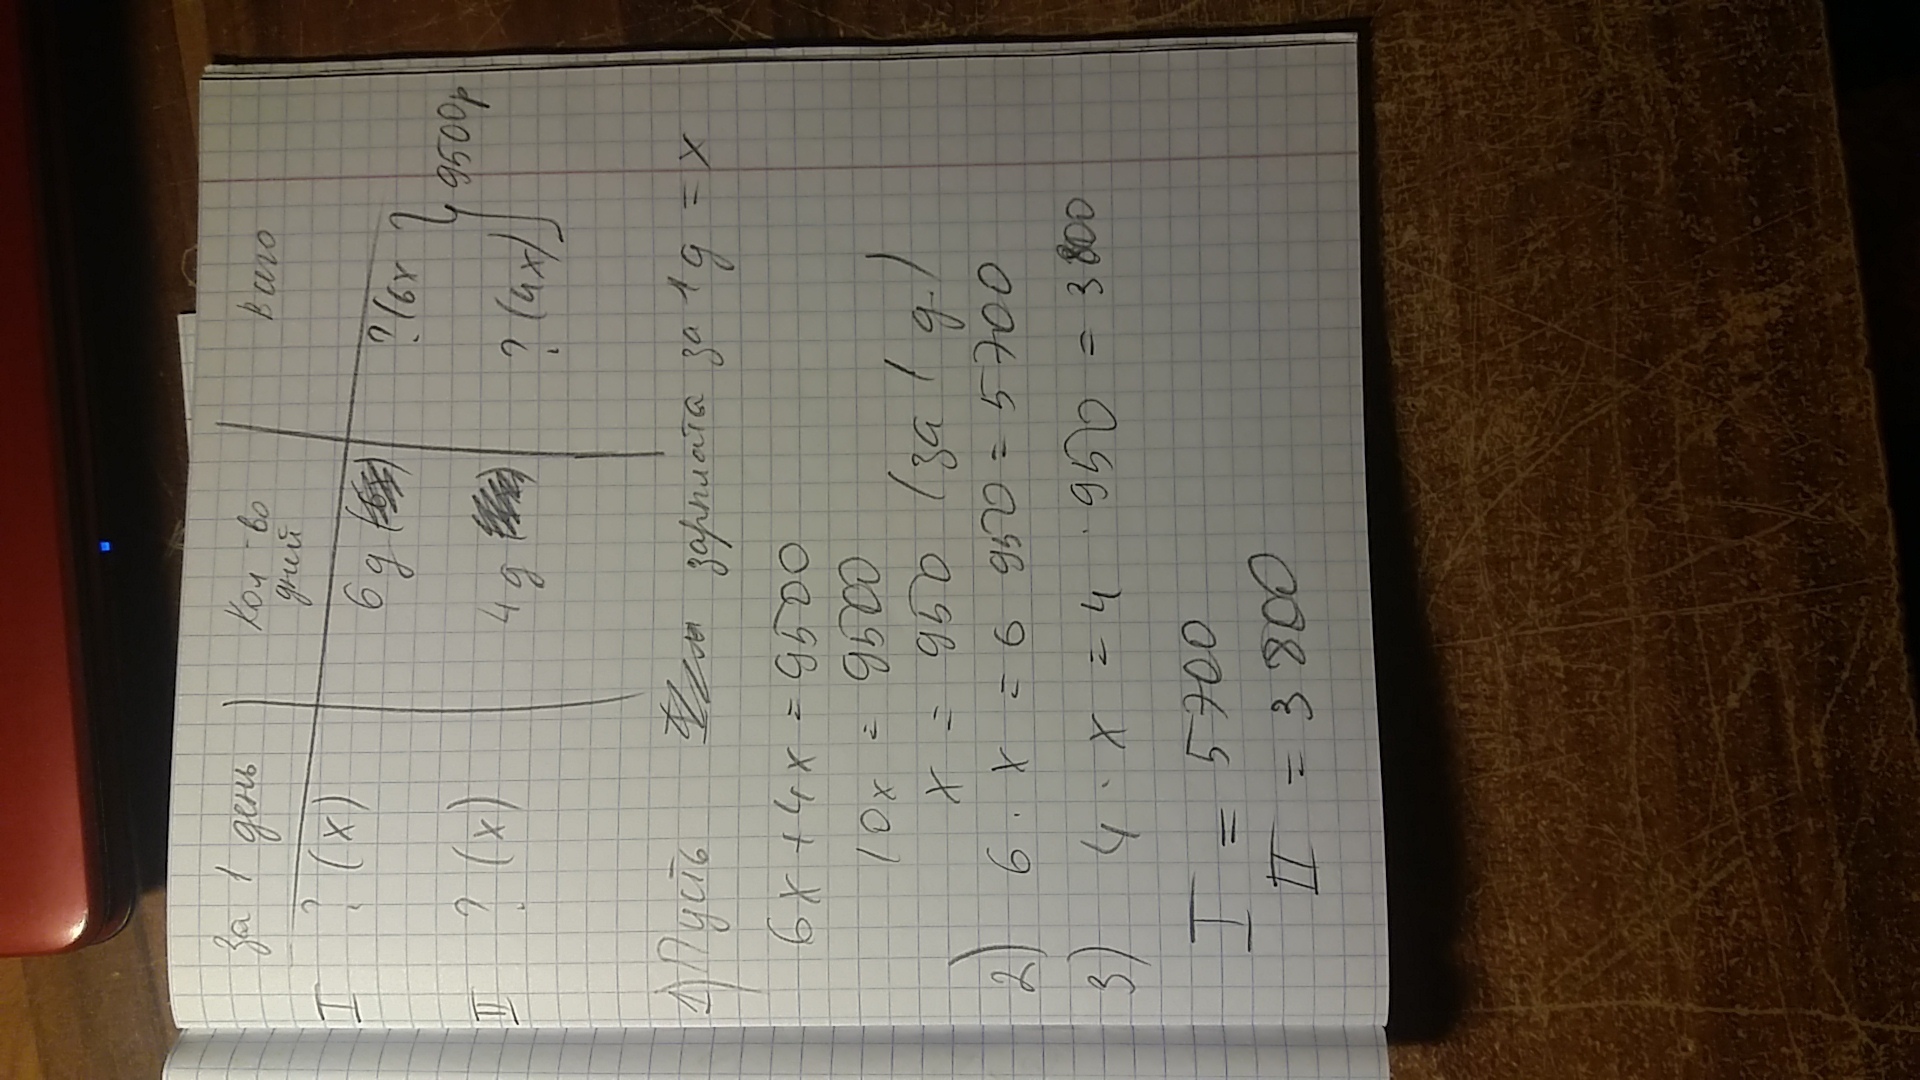 За 1 день Кол-во дней Всего
I ? (x) 6 д ? (6x
9500р
II ? (x) 4 д ? (4x)
1) Пусть зарплата за 1 д = x
6x + 4x = 9500
10x = 9500
x = 950 (за 1 д.)
2) 6 · x = 6 950 = 5700
3) 4 · x = 4 · 950 = 3800
I = 5700
II = 3800